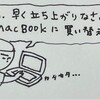 … 早く立ち上がりなさ
macBookに買い替え
カタカタ…